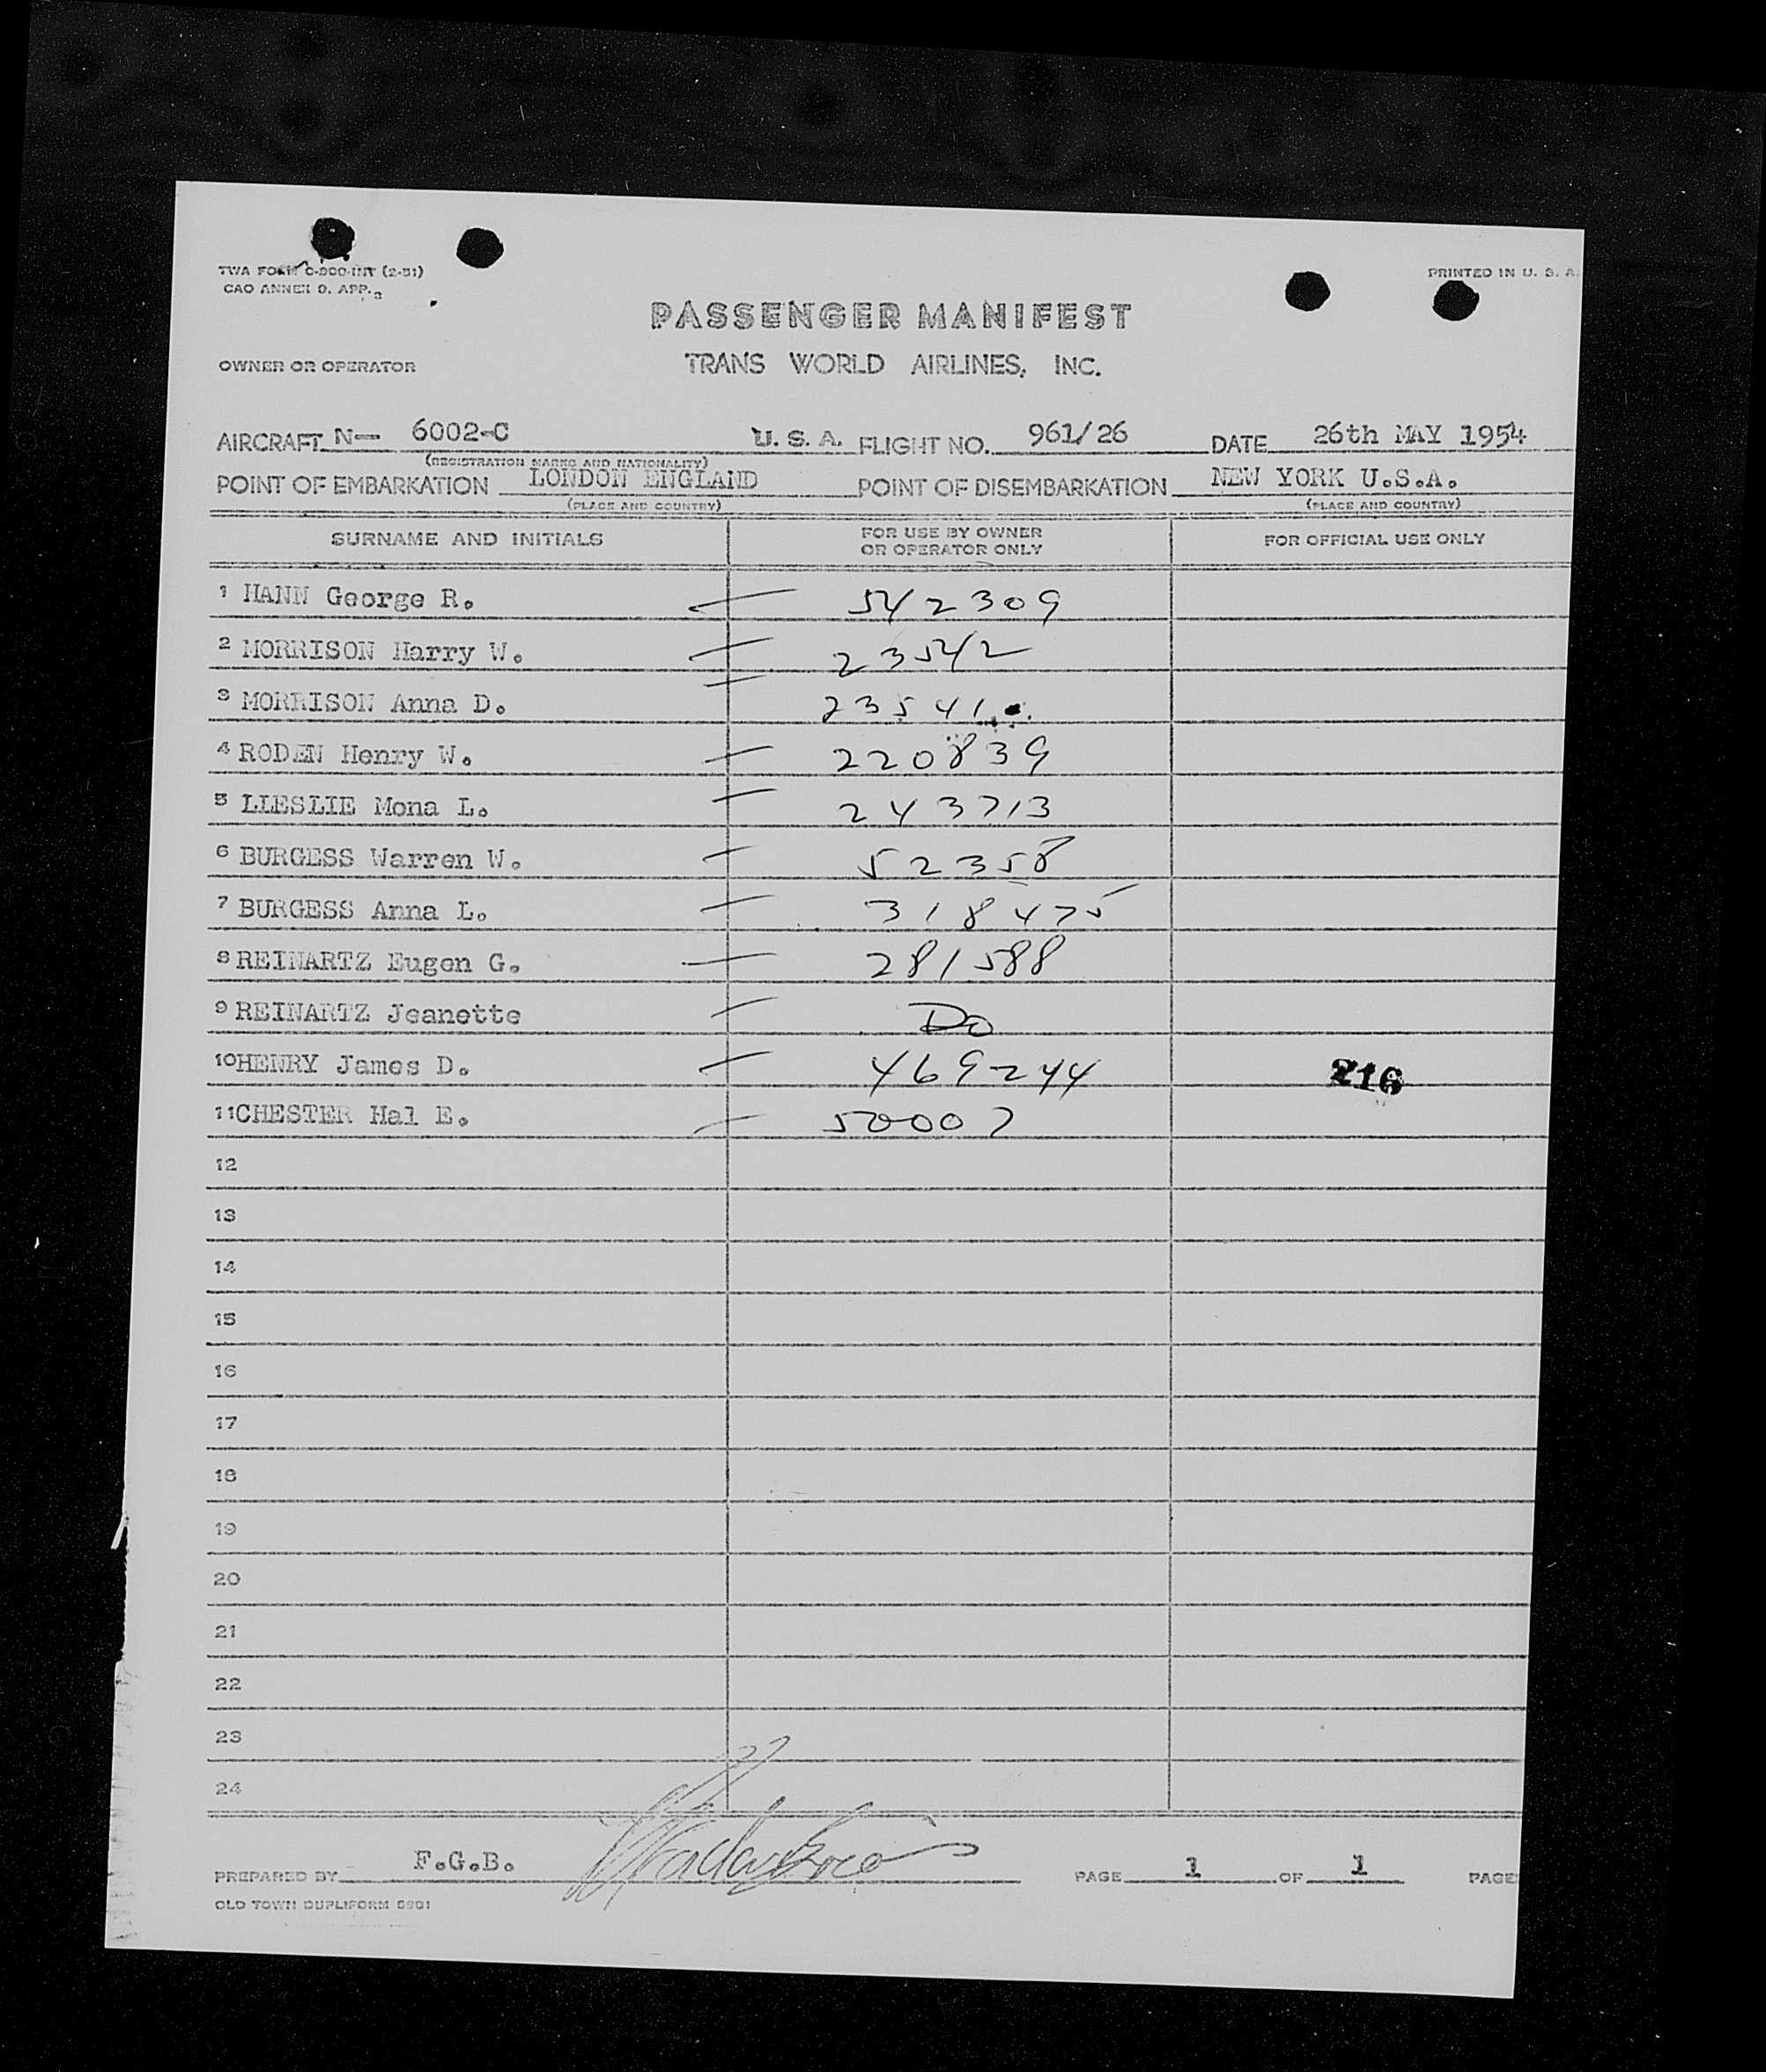 TWA FORM C-900-INT (2-51)
PRINTED IN U. S. A.
CAO ANNEX 9. APP.
PASSENGER MANIFEST
OWNER OR OPERATOR TRANS WORLD AIRLINES, INC.
AIRCRAFT N— 6002-C U. S. A. FLIGHT NO. 961/26 DATE 26th MAY 1954
(REGISTRATION MARKS AND NATIONALITY)
POINT OF EMBARKATION LONDON ENGLAND POINT OF DISEMBARKATION NEW YORK U.S.A.
(PLACE AND COUNTRY) (PLACE AND COUNTRY)
SURNAME AND INITIALS FOR USE BY OWNER OR OPERATOR ONLY FOR OFFICIAL USE ONLY
1 HANN George R. — 542309
2 MORRISON Harry W. — 23542
3 MORRISON Anna D. — 23541
4 RODEN Henry W. — 220839
5 LIESLIE Mona L. — 243713
6 BURGESS Warren W. — 52358
7 BURGESS Anna L. — 318475
8 REINARTZ Eugen G. — 281588
9 REINARTZ Jeanette — Do
10 HENRY James D. — 469244 216
11 CHESTER Hal E. — 50007
12
13
14
15
16
17
18
19
20
21
22
23
24
PREPARED BY F.G.B. PAGE 1 OF 1 PAGE
OLD TOWN DUPLIFORM